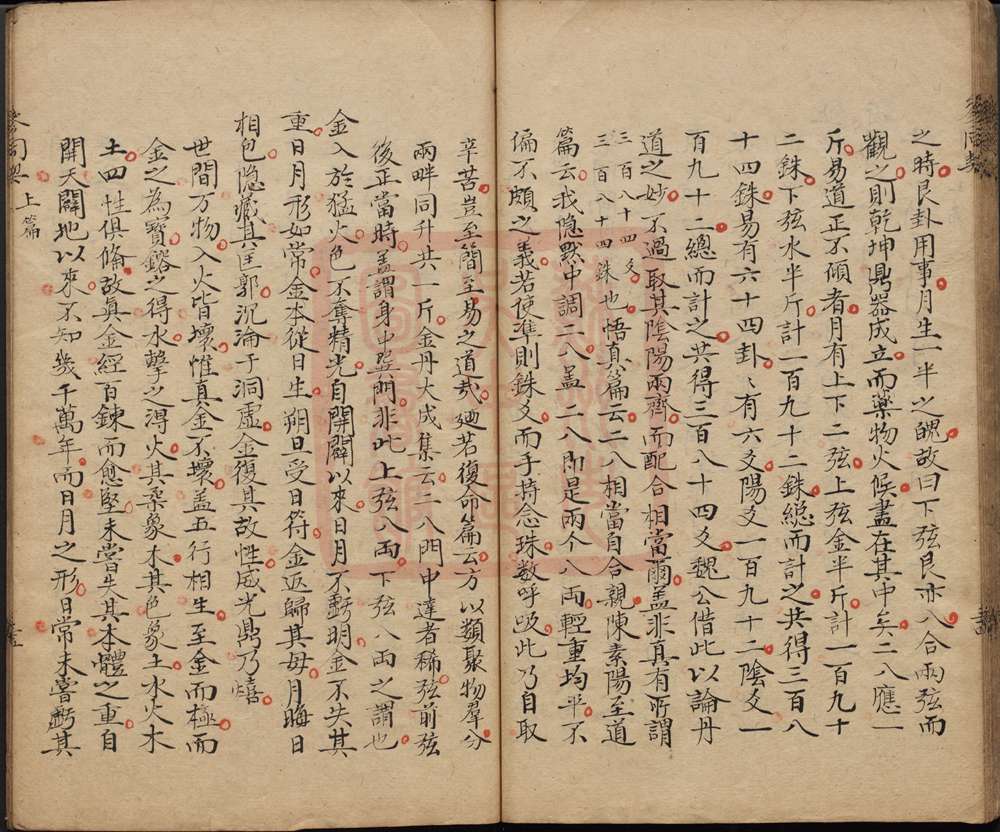 之時艮卦用事月生一半之魄故曰下弦艮亦八合兩弦而
觀之則乾坤鼎器成立而藥物火候盡在其中矣二八應一
斤易道正不傾者月有上下二弦上弦金半斤計一百九十
二銖下弦水半斤計一百九十二銖緫而計之共得三百八
十四銖易有六十四卦〻有六爻陽爻一百九十二陰爻一
百九十二緫而計之共得三百八十四爻魏公借此以論丹
道之妙不過取其陰陽兩齊而配合相當爾盖非真有所謂
三百八十四爻
三百八十四銖也悟真篇云二八相當自合親陳素陽至道
篇云我隐默中調二八盖二八即是兩个八兩輕重均平不
偏不頗之義若使準則銖爻而手持念珠数呼吸此乃自取
辛苦豈至簡至易之道㢤廼若復命篇云方以類聚物羣分
兩畔同升共一斤金丹大成集云二八門中達者稀弦前弦
後正當時盖謂身中㢲門非此上弦八两下弦八两之謂也
金入於猛火色不奪精光自開闢以來日月不虧明金不失其
重日月形如常金本從日生朔旦受日符金返歸其母月晦日
相包隐藏其匡郭沉淪于洞虚金復其故性威光鼎乃熺
世間万物入火皆壊惟真金不壊盖五行相生至金而極而
金之為寳鎔之得水擊之淂火其柔象木其色象土水火木
土四性俱俻故真金經百鍊而愈堅未嘗失其本體之重自
開天闢地以來不知幾千萬年而日月之形日常未嘗虧其
參同契
上篇